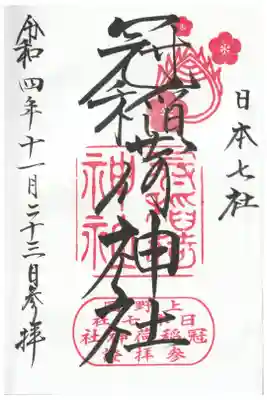 日本七社
冠稲荷神社
令和四年十一月二十三日参拝
上野国
日本七社
冠稲荷神社